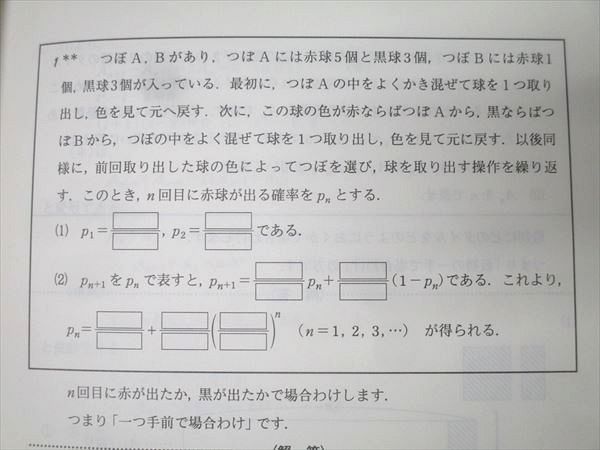 1** つぼA，Bがあり，つぼAには赤球5個と黒球3個，つぼBには赤球1
個，黒球3個が入っている．最初に，つぼAの中をよくかき混ぜて球を1つ取り
出し，色を見て元へ戻す．次に，この球の色が赤ならばつぼAから，黒ならばつ
ぼBから，つぼの中をよく混ぜて球を1つ取り出し，色を見て元に戻す．以後同
様に，前回取り出した球の色によってつぼを選び，球を取り出す操作を繰り返
す．このとき，n回目に赤球が出る確率をpₙとする．
(1) p₁＝□/□，p₂＝□/□である．
(2) pₙ₊₁をpₙで表すと，pₙ₊₁＝□/□pₙ＋□/□(1－pₙ)である．これより，
pₙ＝□/□＋□/□(□/□)ⁿ （n＝1，2，3，…）が得られる．
n回目に赤が出たか，黒が出たかで場合わけします．
つまり「一つ手前で場合わけ」です．
〈解 答〉